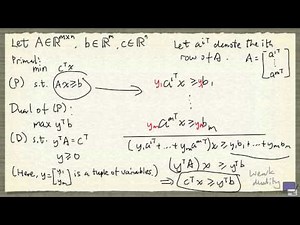 Let A∈ℝ^{m×n}, b∈ℝ^m, c∈ℝ^n
Primal:
min c^T x
(P) s.t. Ax ≥ b
Dual of (P):
max y^T b
(D) s.t. y^T A = c^T
y ≥ 0
(Here, y = [y_1 ⋮ y_m] is a tuple of variables.)
Let a^{iT} denote the ith
row of A. A = [a^{1T} ⋮ a^{mT}]
y_1 a^{1T} x ≥ y_1 b_1
⋮
y_m a^{mT} x ≥ y_m b_m
(y_1 a^{1T} + ... + y_m a^{mT}) x ≥ y_1 b_1 + ... + y_m b_m
(y^T A) x ≥ y^T b
⇒ c^T x ≥ y^T b
weak
duality